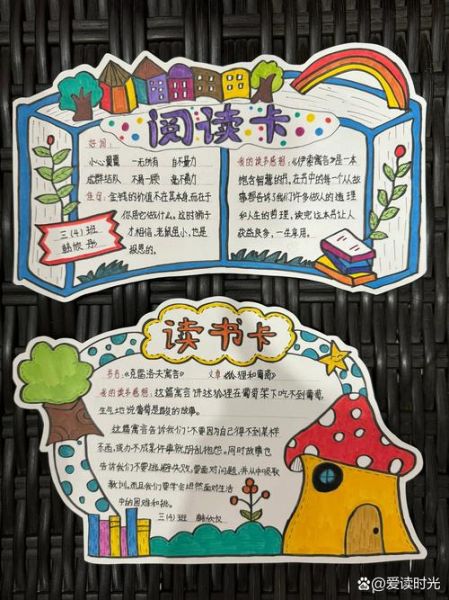 阅读卡
好词:
小心翼翼 一无所有 自不量力
成群结队 不屑一顾 毫不费力
佳句: 金钱的价值不在其本身,而在于
你用它做什么。这时狮子
才相信,老鼠虽小,也是
报恩的。
三(4)班
韩欣彤
我的读书感想:《伊索寓言》是一本
饱含智慧的书,在书中的每一个从故
事都告诉了我们许多做人的道理
和人生的哲理,读完这本书让人
获益良多,一生享用。
读书卡
书名:《克雷洛夫寓言》 文章《狐狸和葡萄》
我的读书感想:这篇寓言讲述狐狸在葡萄架下吃不到葡萄,
生气地说葡萄是酸的故事。
这篇寓言告诉我们:不要因为自己得不到某样
东西,或办不成某件事就胡乱抱怨,同时故事也
告诉我们不要逃避失败,要面对问题,并从中吸取
教训,而且我们要学会坦然面对生活
中的困难和挑。
三(4)班 韩欣
爱读时光